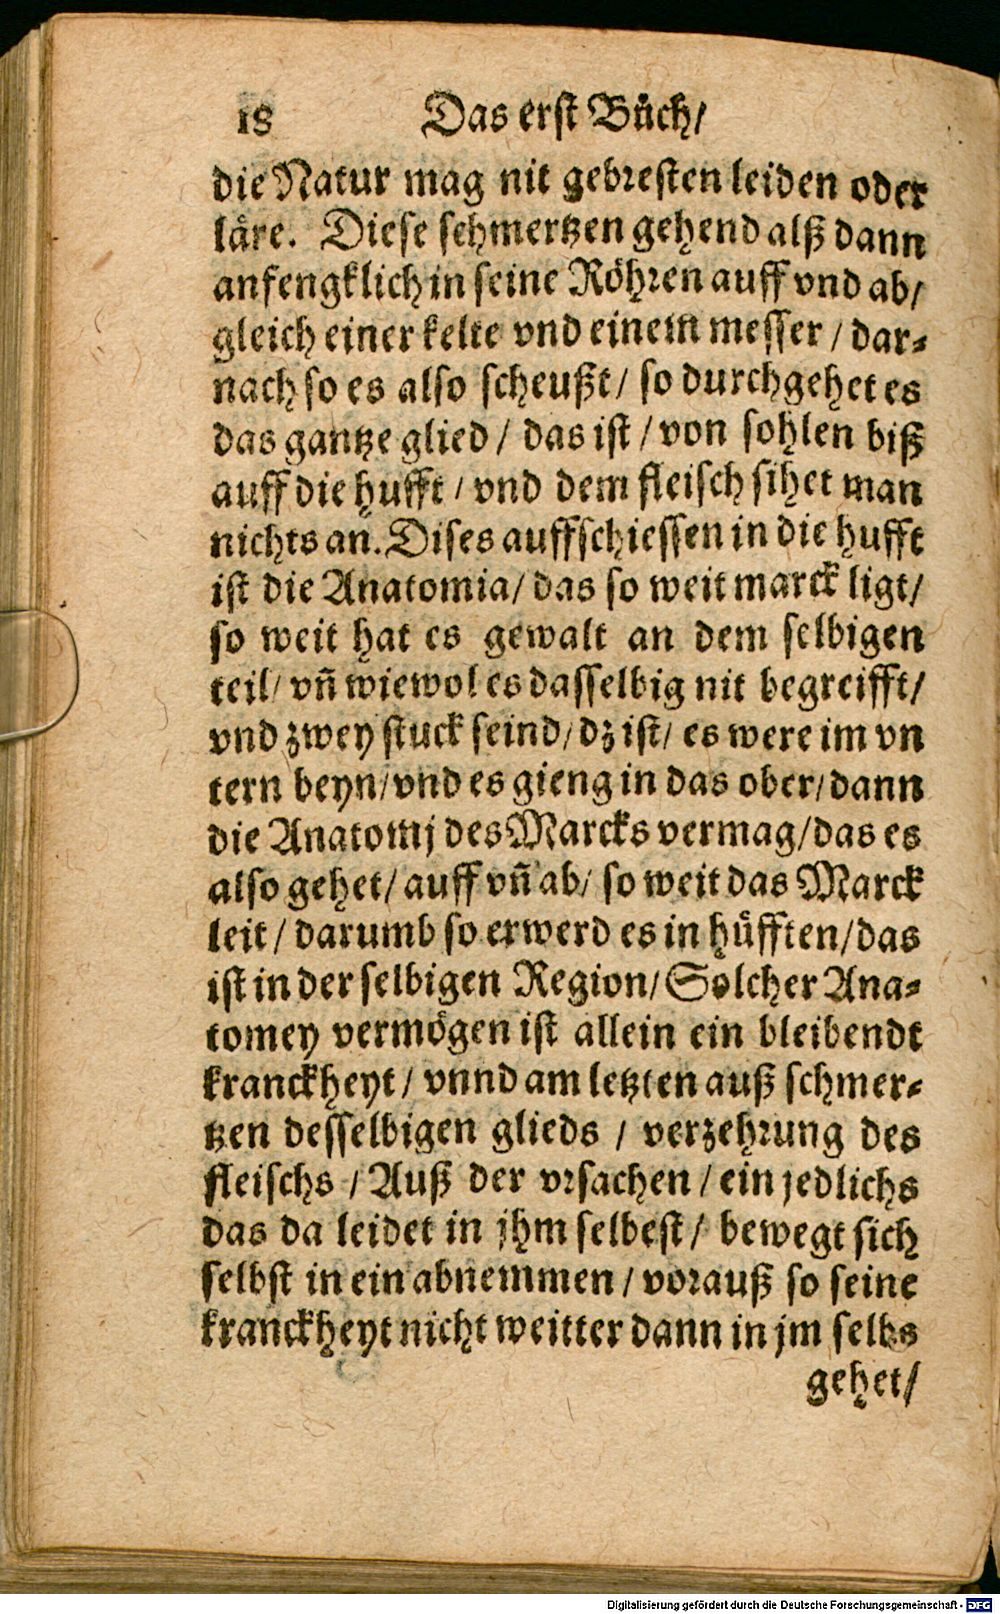 18 Das erst Bůch/
die Natur mag nit gebresten leiden oder
låre. Diese schmertzen gehend alß dann
anfengklich in seine Röhren auff vnd ab/
gleich einer kelte vnd einem messer / dar⸗
nach so es also scheußt / so durchgehet es
das gantze glied / das ist / von sohlen biß
auff die hufft / vnd dem fleisch sihet man
nichts an. Dises auffschiessen in die hufft
ist die Anatomia / das so weit marck ligt/
so weit hat es gewalt an dem selbigen
teil / vñ wiewol es dasselbig nit begreifft/
vnd zwey stuck seind / dz ist / es were im vn
tern beyn / vnd es gieng in das ober / dann
die Anatomj des Marcks vermag / das es
also gehet / auff vñ ab / so weit das Marck
leit / darumb so erwerd es in hüfften / das
ist in der selbigen Region / Solcher Ana⸗
tomey vermögen ist allein ein bleibendt
kranckheyt / vnnd am letzten auß schmer⸗
tzen desselbigen glieds / verzehrung des
fleischs / Auß der vrsachen / ein jedlichs
das da leidet in jhm selbest / bewegt sich
selbst in ein abnemmen / vorauß so seine
kranckheyt nicht weitter dann in jm selbs
gehet/
Digitalisierung gefördert durch die Deutsche Forschungsgemeinschaft - DFG